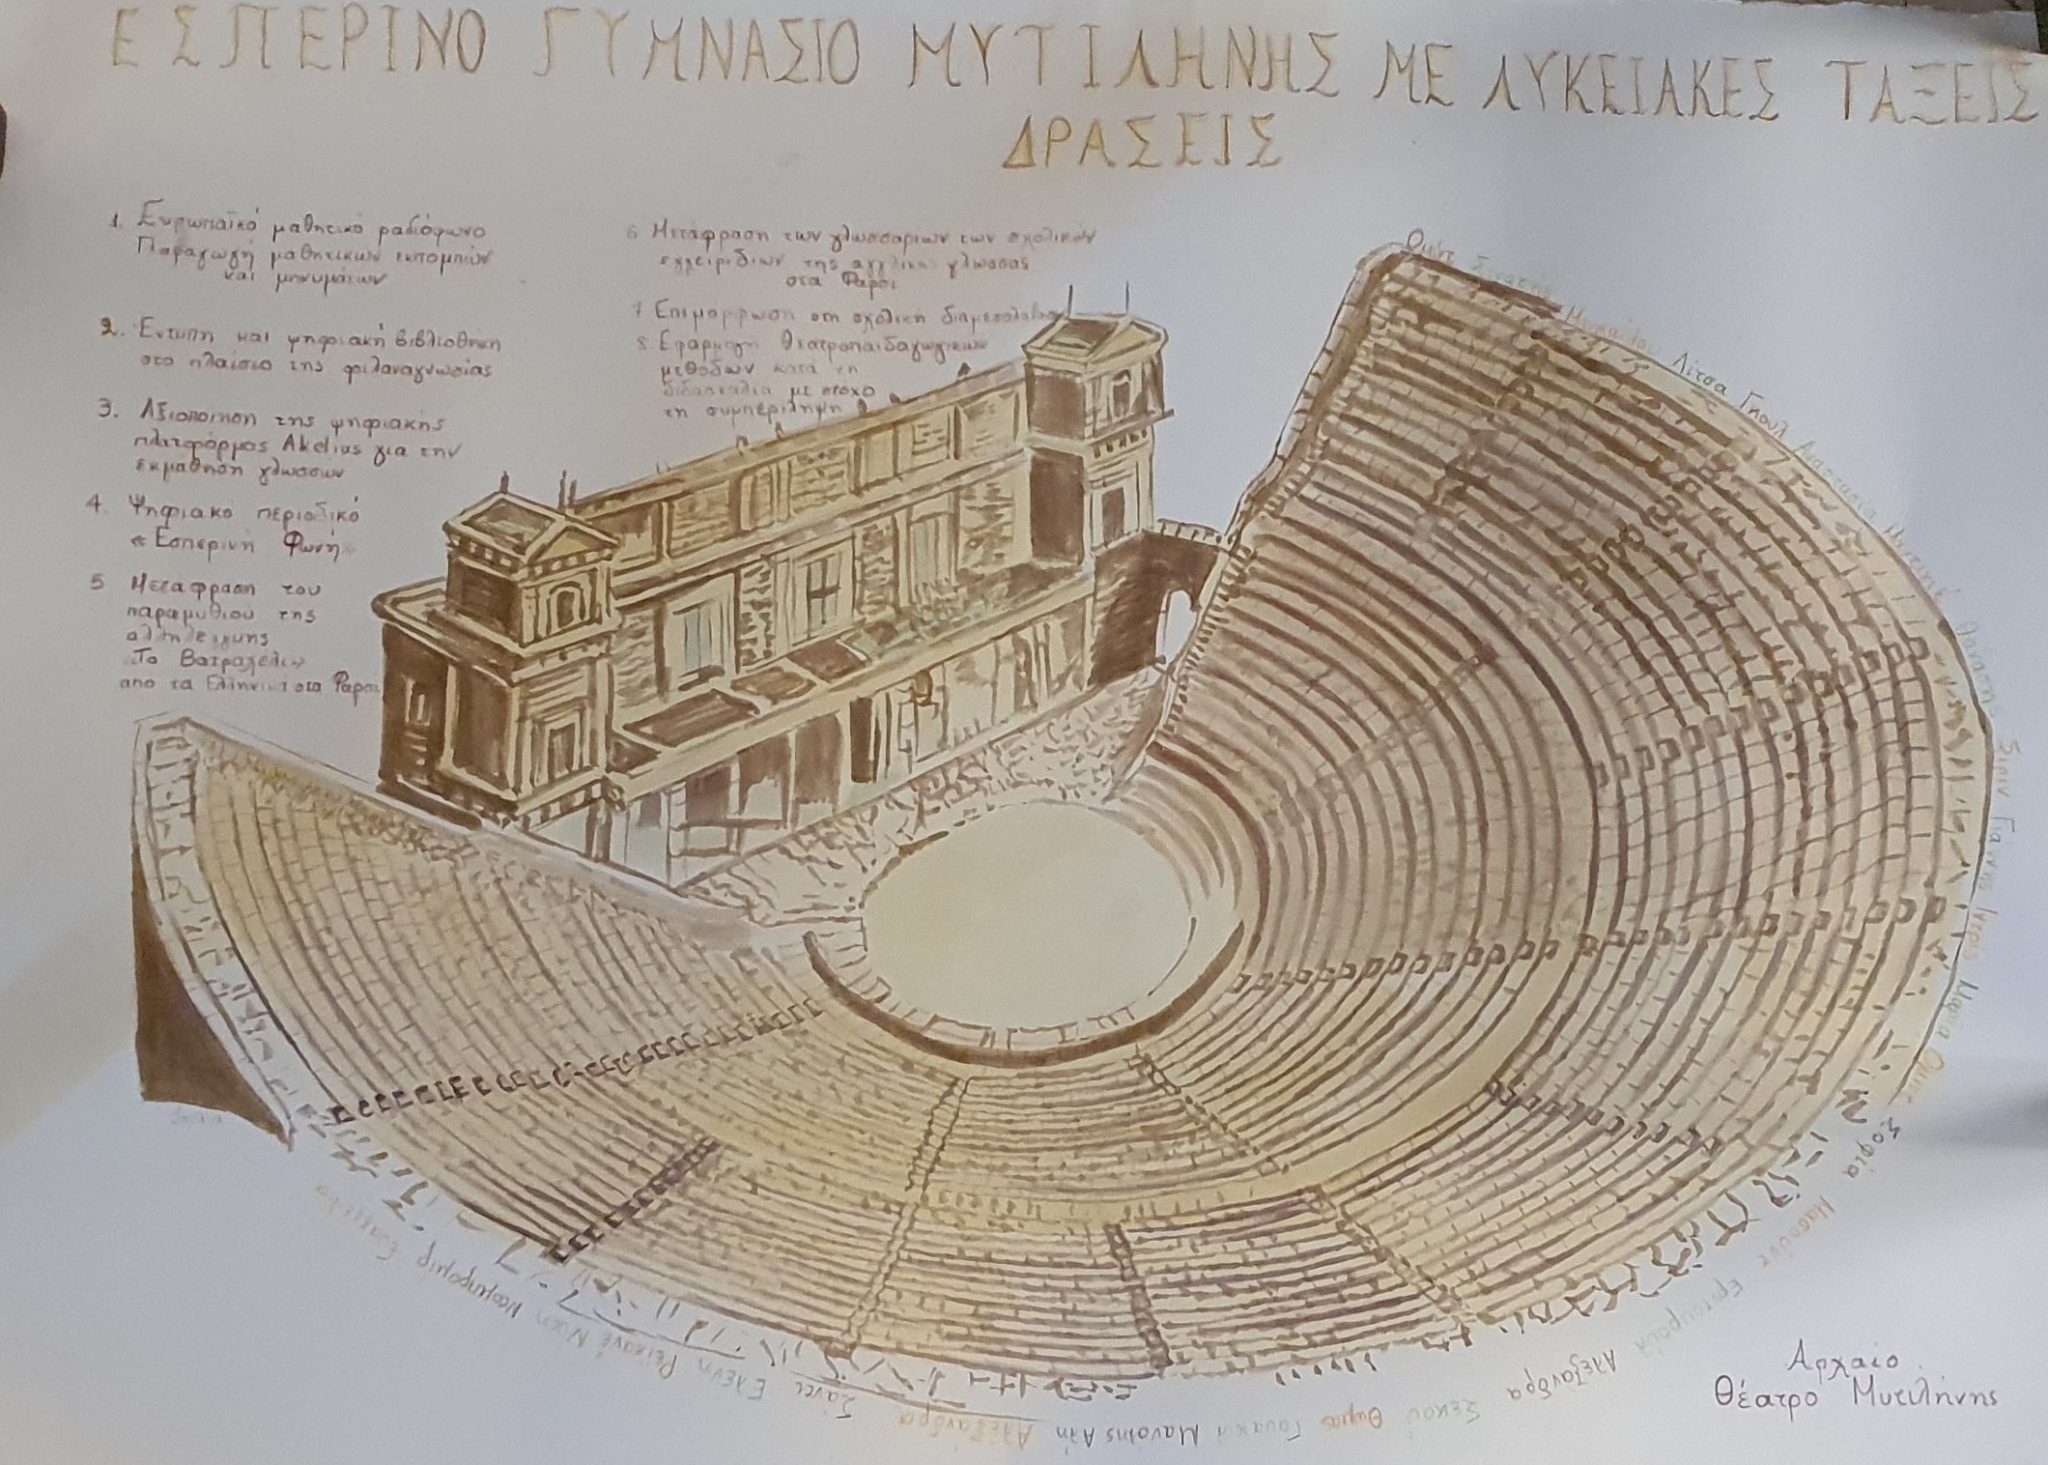 ΕΣΠΕΡΙΝΟ ΓΥΜΝΑΣΙΟ ΜΥΤΙΛΗΝΗΣ ΜΕ ΛΥΚΕΙΑΚΕΣ ΤΑΞΕΙΣ
ΔΡΑΣΕΙΣ
1. Ευρωπαϊκό μαθητικό ραδιόφωνο
Παραγωγή μαθητικών εκπομπών
και μηνυμάτων
2. Έντυπη και ψηφιακή βιβλιοθήκη
στο πλαίσιο της φιλαναγνωσίας
3. Αξιοποίηση της ψηφιακής
πλατφόρμας Akelius για την
εκμάθηση γλωσσών
4. Ψηφιακό περιοδικό
«Εσπερινή Φωνή»
5 Μετάφραση του
παραμυθιού της
αλληλεγγύης
«Το Βατραχέλι»
από τα Ελληνικά στα Φαρσί
6 Μετάφραση των γλωσσαρίων των σχολικών
εγχειριδίων της αγγλικής γλώσσας
στα Φαρσί
7 Επιμόρφωση στη σχολική διαμεσολάβηση
8 Εφαρμογή θεατροπαιδαγωγικών
μεθόδων κατά τη
διδασκαλία με στόχο
τη συμπερίληψη
Λίτσα Γιουλ
Γιάννης
Μαρία
Σοφία
Μασούντ
Ερτουγρούλ
Αλεξάνδρα
Σεκού
Θωμάς
Μανώλης Αλή
Αλεξάνδρα
Ελένη
Ρεϊχανέ
Νίκη
Αρχαίο
Θέατρο Μυτιλήνης